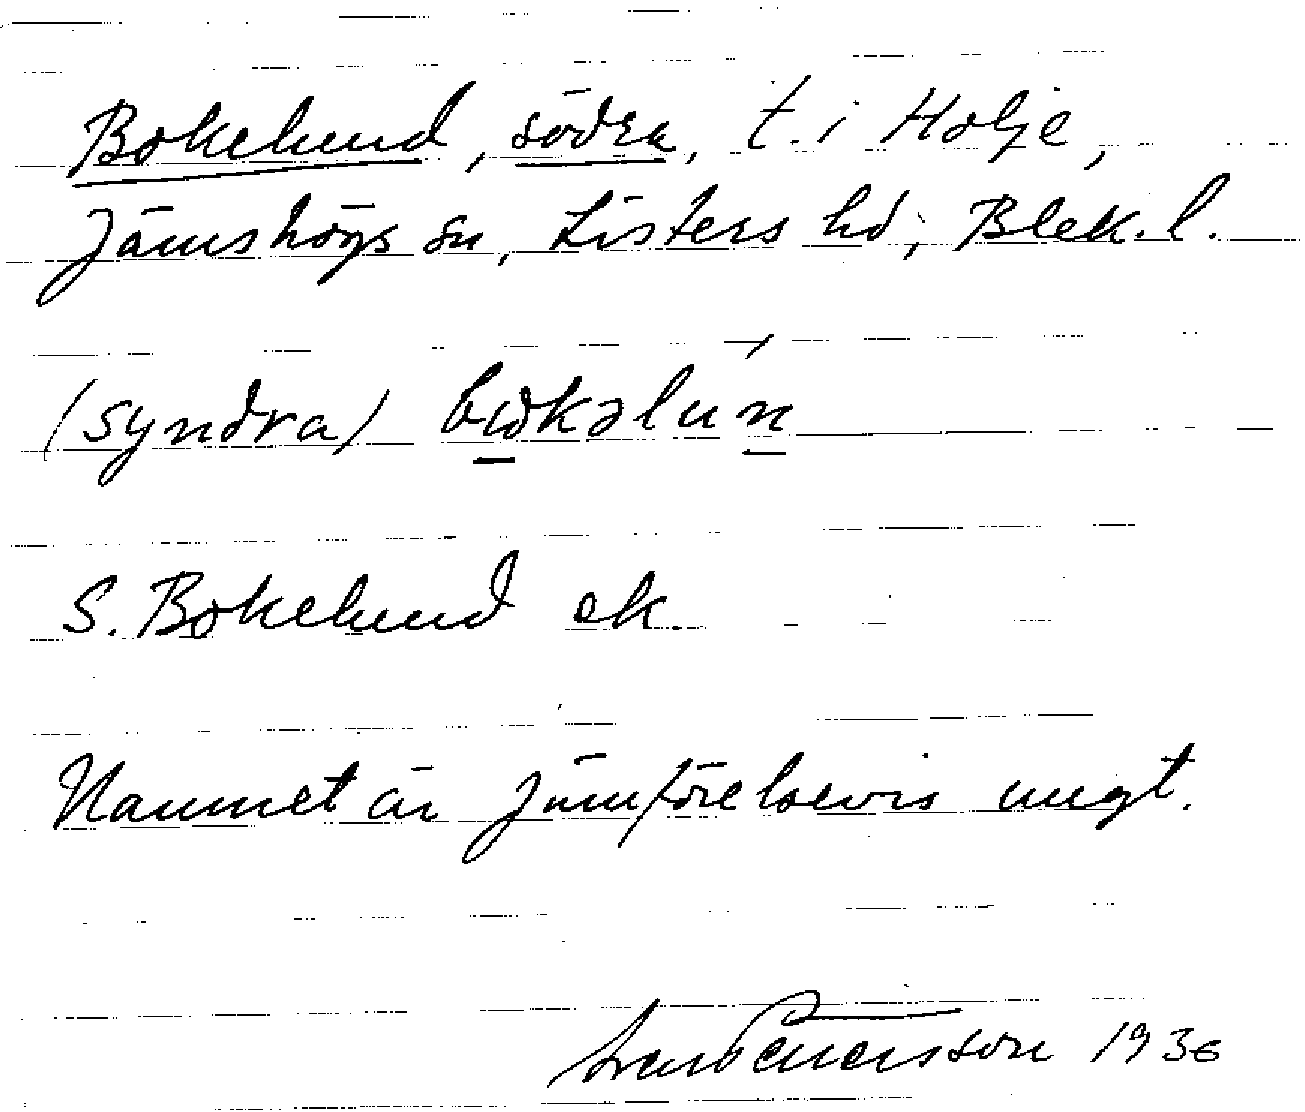 Bokelund, södra, t. i Holje,
Jämshögs sn, Listers hd, Blek. l.
(syndra) bωkəlún
S. Bokelund ek.
Namnet är jämförelsevis ungt.
1936